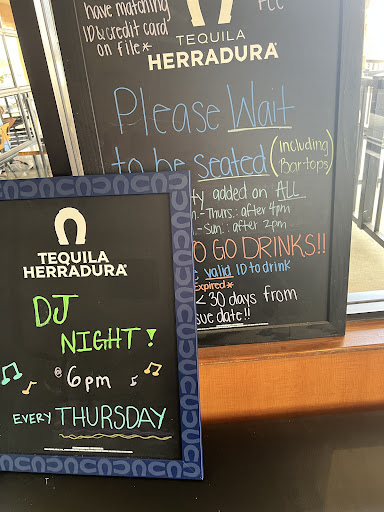 have matching
ID & credit card
on file*
TEQUILA
HERRADURA
Please Wait
to be seated (Including
Bar-tops)
ty added on ALL
.-Thurs.: after 4pm
.-Sun.: after 2pm
O GO DRINKS!!
valid ID to drink
Expired*
< 30 days from
sue date!!
TEQUILA
HERRADURA
DJ
NIGHT!
@ 6pm
EVERY THURSDAY